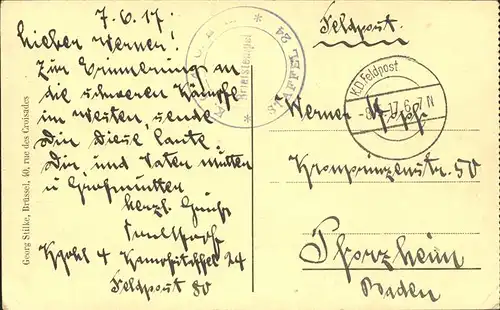 7.6.17.
Lieber Werner!
Zur Erinnerung an
die schweren Kämpfe
im Westen, sende
Dir diese Karte.
Dir, und
u Großmutter
herzl. Grüße
4 24
Feldpost 80
Georg Stilke, Brüssel, 60, rue des Croisades
Briefstempel
STAFFEL 24
Feldpost.
K.D. Feldpost
17. 6-7 N
Werner
Kronprinzenstr. 50
Pforzheim
Baden